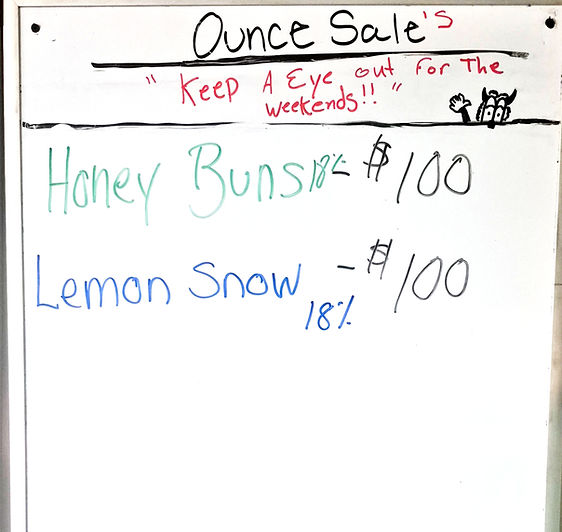 Ounce Sale's
"Keep A Eye out For The
weekends!!"
Honey Buns 18% - $100
Lemon Snow - $100
18%